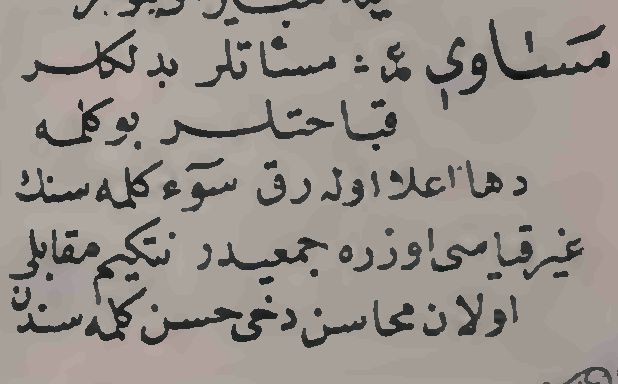 مساوی ع : مسئاتلر بدلكلر
قباحتلر بو كلمه
دها اعلا اوله رق سوء كلمه سنك
غير قياسى اوزره جمعيدر نتكيم مقابلى
اولان محاسن دخى حسن كلمه سندن